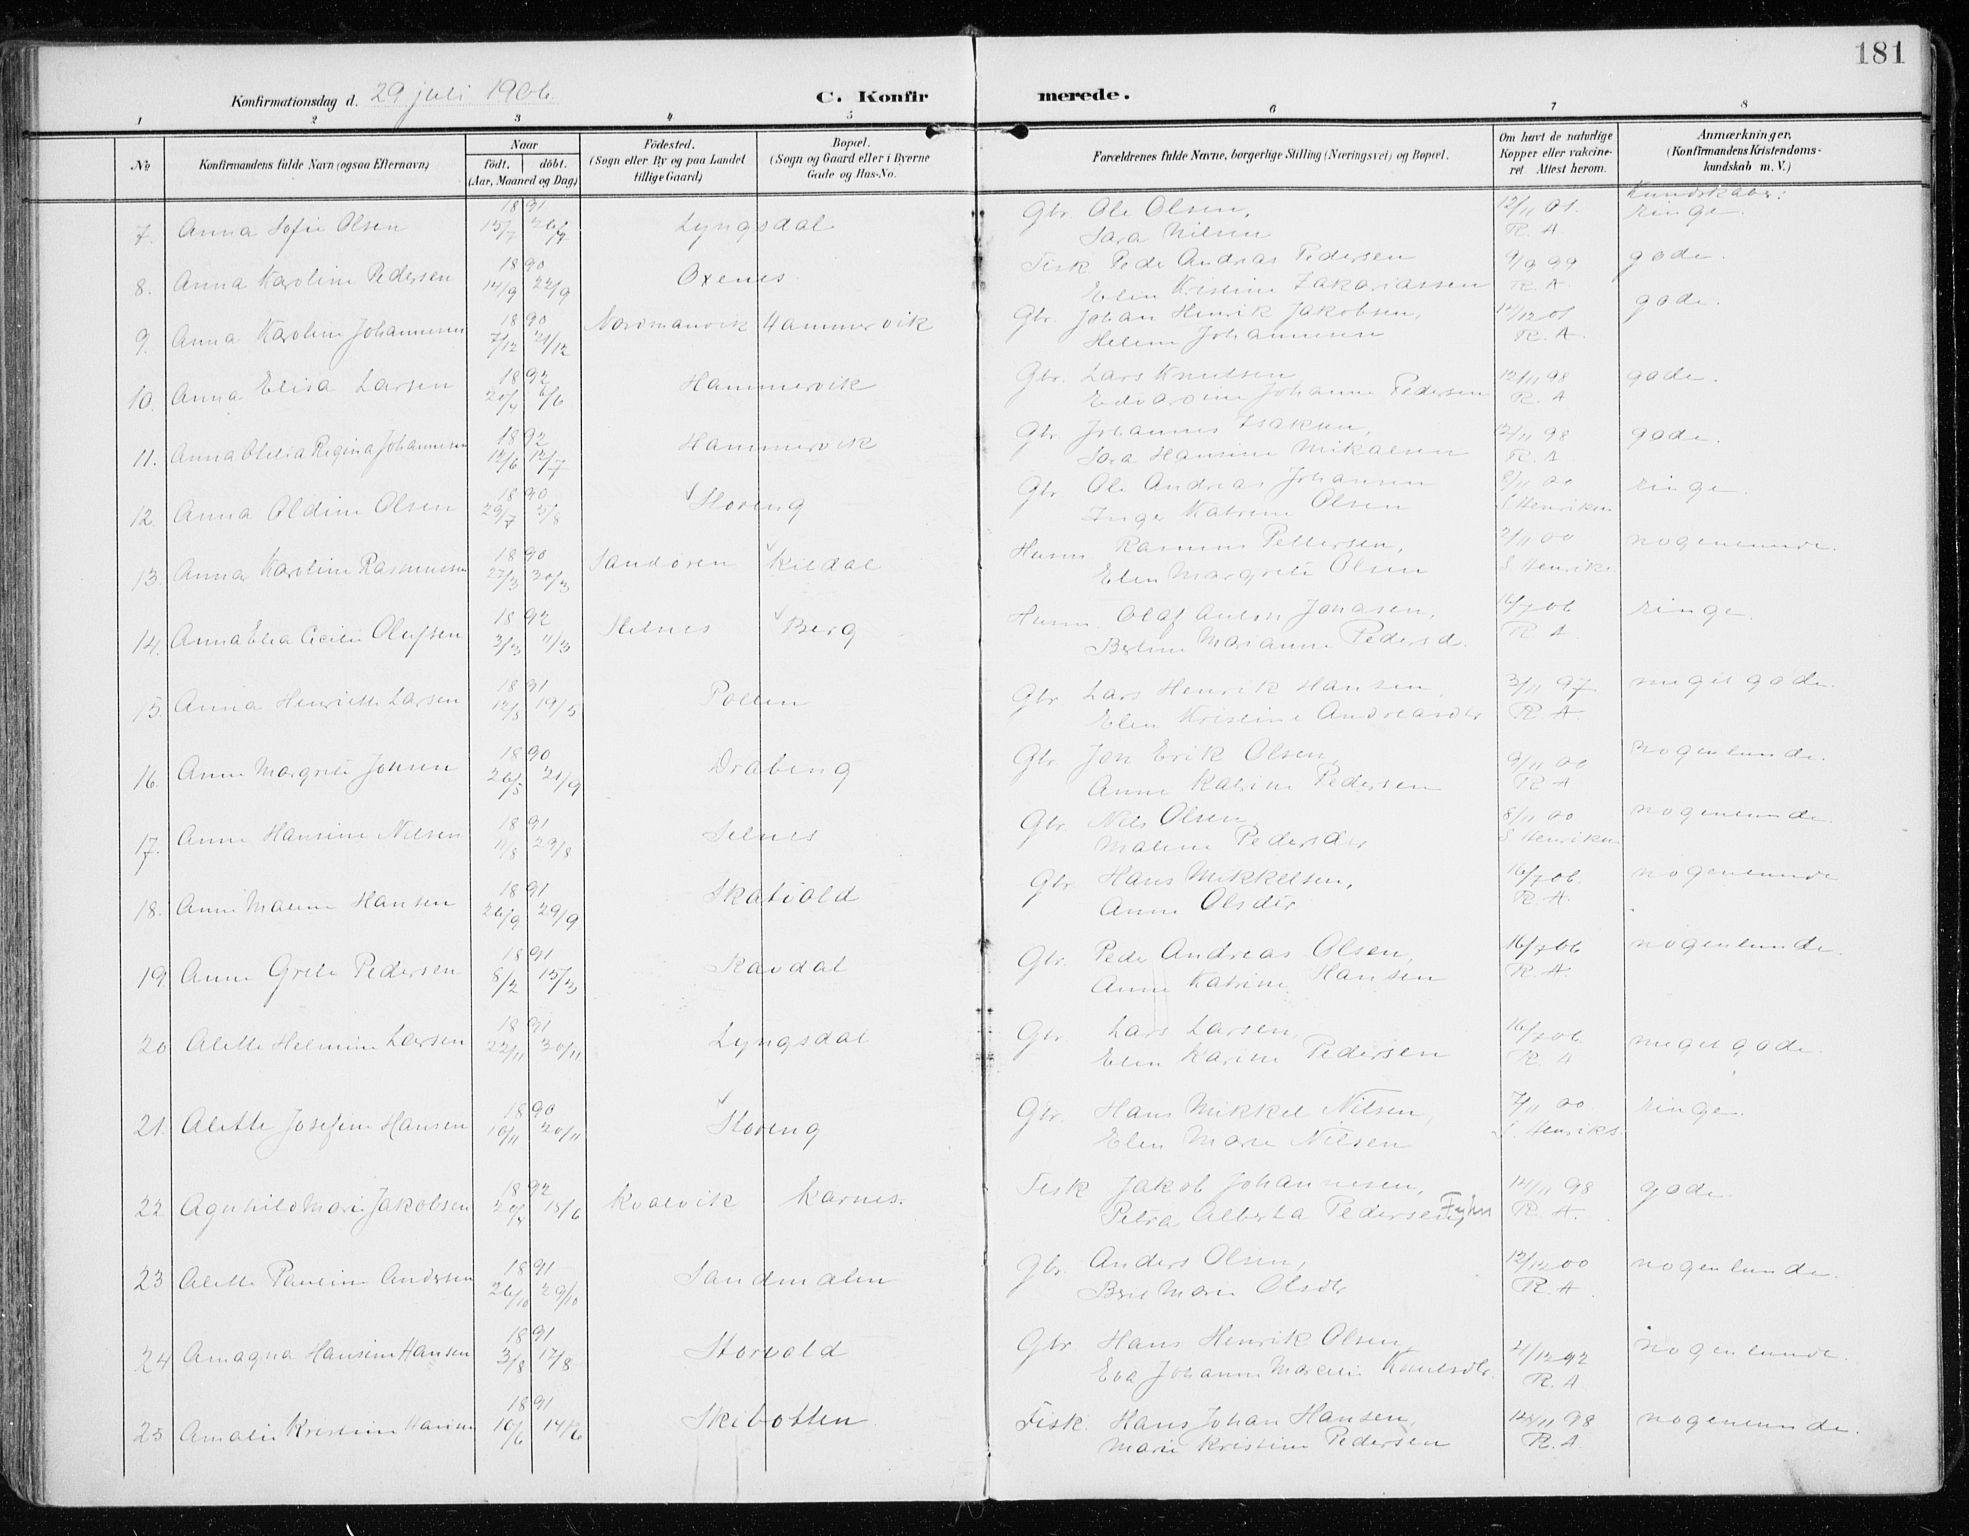 181
Konfirmationsdag d. 29 juli 1906
C. Konfirmerede.
1 2 3 4 5 6 7 8
No
Konfirmandens fulde Navn (ogsaa Efternavn)
Naar
født. døbt.
(Aar, Maaned og Dag)
Fødested.
(Sogn eller By og paa Landet tillige Gaard)
Bopæl.
(Sogn og Gaard eller i Byerne Gade og Hus-No.
Forældrenes fulde Navne, borgerlige Stilling (Næringsvei) og Bopæl.
Om havt de naturlige Kopper eller vakcineret. Attest herom.
Anmærkninger.
(Konfirmandens Kristendomskundskab m. V.)
Kundskaber:
7. Anna Sofie Olsen 1891 15/7 26/7 Lyngsdal Gbr. Ole Olsen, 12/11 01. ringe.
Sara Nilsen R. A
8. Anna Karoline Pedersen 1890 14/9 22/9 Oxenes Fisk Peder Andreas Pedersen 9/9 99 gode.
Elen Kristine Zakariassen R. A.
9. Anna Karoline Johannesen 1890 7/12 21/12 Nordmanvik Hammervik Gbr. Johan Henrik Jakobsen, 12/12 01 gode.
Helene Johannesen R. A.
10. Anna Elisa Larsen 1892 20/4 6/6 Hammervik Gbr. Lars Knutsen 12/11 98 gode.
Edvardine Johanne Pedersen R. A
11. Anna Otelia Regina Johannesen 1892 12/6 12/7 Hammervik Gbr. Johannes Isaksen, 12/11 98 gode.
Sara Hansine Mikalsen R. A
12. Anna Oldine Olsen 1890 29/7 5/8 Storeng Gbr. Ole Andreas Johansen 8/11 00 ringe.
Inger Katrine Olsen S Henriksen
13. Anna Karoline Rasmussen 1890 27/3 30/3 Sandøren Kildal Husm Rasmus Pettersen, 2/11 00 nogenlunde.
Elen Margrete Olsen S Henriks.
14. Anna Elea Cecilie Olufsen 1892 3/3 11/3 Selnes Berg Husm. Olaf Jonasen, 16/7 06 ringe.
Berline Marianne Pedersd. R A
15. Anna Henriette Larsen 1891 12/5 19/5 Pollen Gbr Lars Henrik Hansen, 3/11 97. meget gode.
Elen Kristine Andreasdtr R A
16. Anne Margrete Jonsen 1890 26/5 21/9 Drabeng Gbr. Jon Erik Olsen, 9/11 00 nogenlunde.
Anne Katrine Pedersen R A
17. Anne Hansine Nilsen 1891 11/8 23/8 Selnes Gbr. Nils Olsen, 8/11 00 nogenlunde.
Malene Pedersdtr S Henriksen
18. Anne Malene Hansen 1891 26/9 29/9 Skatvold Gbr Hans Mikkelsen, 16/7 06. nogenlunde
Anne Olsdtr R. A.
19 Anne Grete Pedersen 1891 8/2 15/3 Skavdal Gbr. Peder Andreas Olsen, 16/7 06 nogenlunde.
Anne Katrine Hansen R. A.
20 Alette Helmine Larsen 1891 22/11 30/11 Lyngsdal Gbr Lars Larsen, 16/7 06. meget gode.
Elen Karine Pedersen R. A
21. Alette Josefine Hansen 1890 10/11 20/11 Storeng Gbr. Hans Mikkel Nilsen, 7/11 00 ringe.
Elen Marie Nilsen S. Henriks.
22 Agnhild Marie Jakobsen 1892 20/4 15/6 Kvalvik Karnes. Fisk Jakob Johannesen, 14/11 98 gode.
Petra Alberta Pedersen Fyhn R. A.
23 Alette Pauline Andersen 1891 26/10 29/10 Sandmalen Gbr. Anders Olsen, 12/12 00 nogenlunde.
Berit Marie Olsdtr R. A
24 Amagna Hansine Hansen 1891 3/8 17/8 Storvold Gbr Hans Henrik Olsen, 4/12 92 nogenlunde.
Eva Johanne Marelie Knutsdtr. R. A
25 Amalie Kristine Hansen 1891 10/6 14/6 Skibotten Fisk. Hans Johan Hansen, 12/11 98 nogenlunde.
Marie Kristine Pedersen R. A.